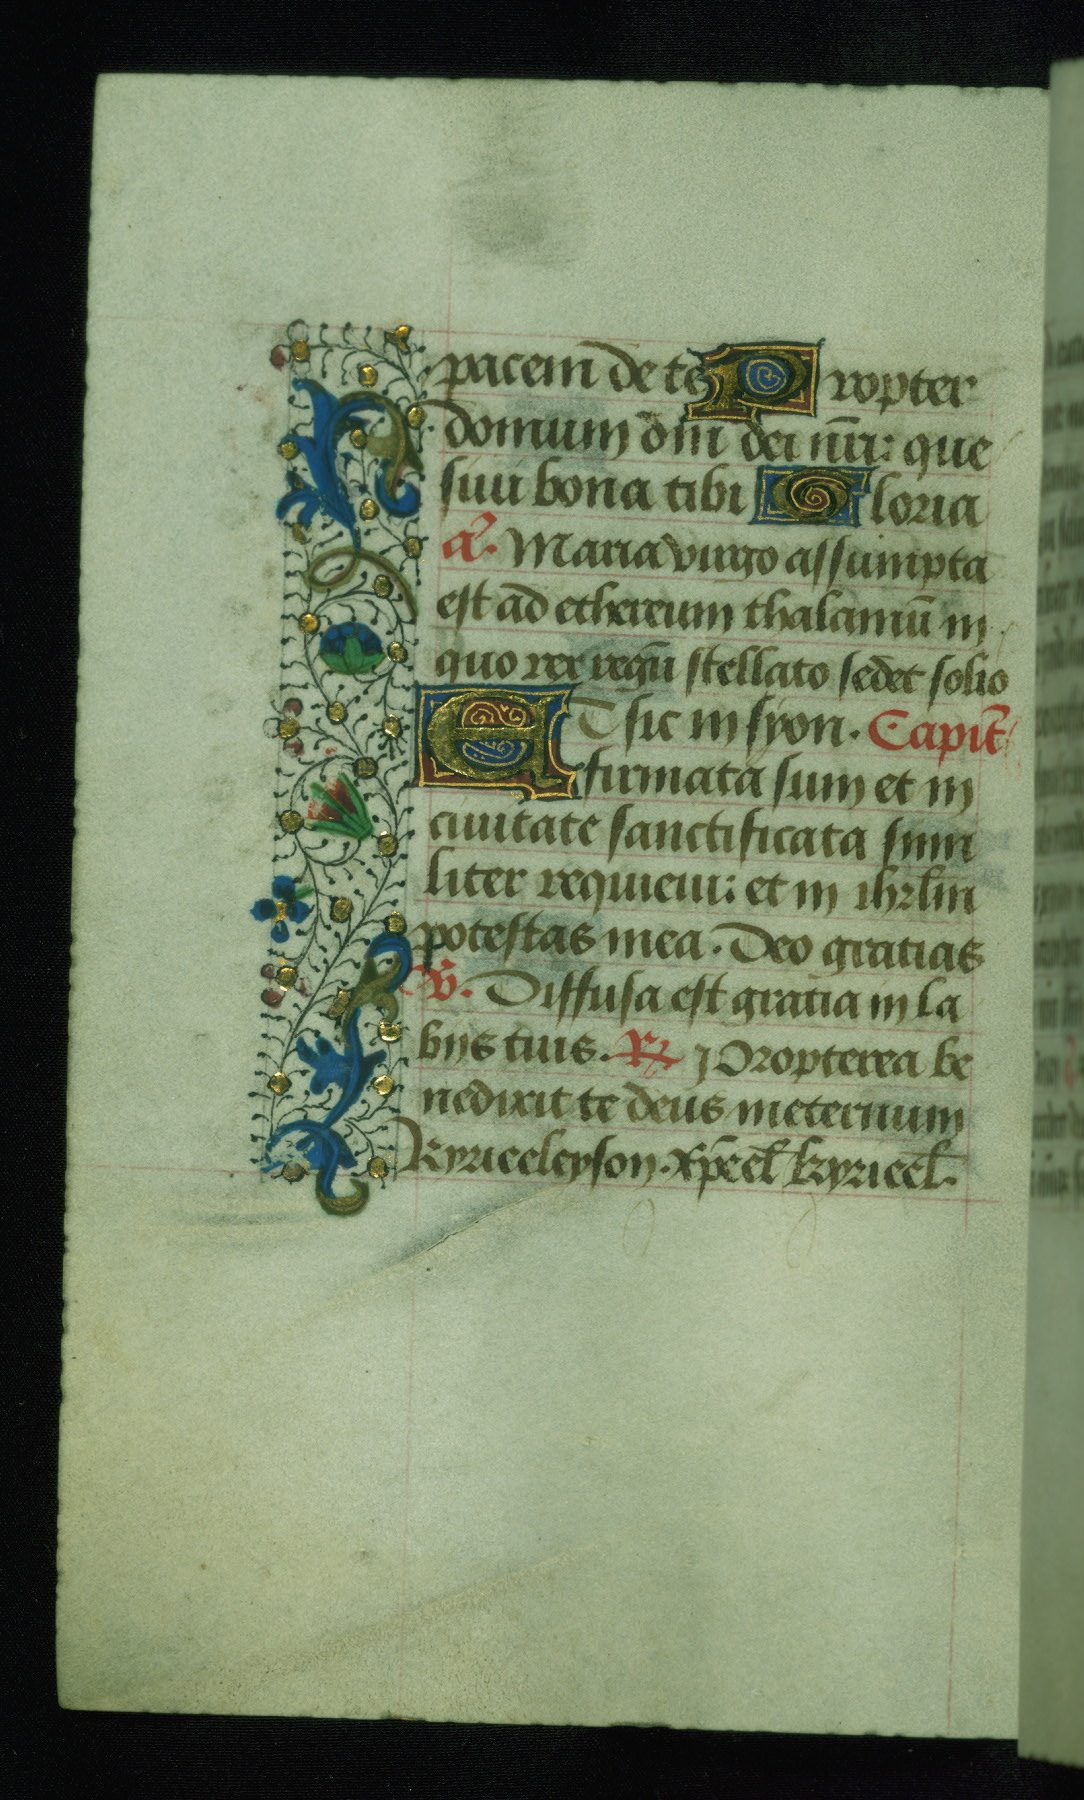 pacem de te Propter
domum dm̄ dei nr̄i: que
siui bona tibi Gloria
a᷑. Maria virgo assumpta
est ad ethereum thalamū in
quo rex regū stellato sedet solio
ET sic in syon. Capit᷑
firmata sum et in
ciuitate sanctificata simi
liter requieui: et in ihrlm̄
potestas mea. Deo gratias
V̄. Diffusa est gratia in la
bijs tuis. ℟ Propterea be
nedixit te deus ineternum
Kyrieeleyson. xp̄eel̄ kyrieel̄.